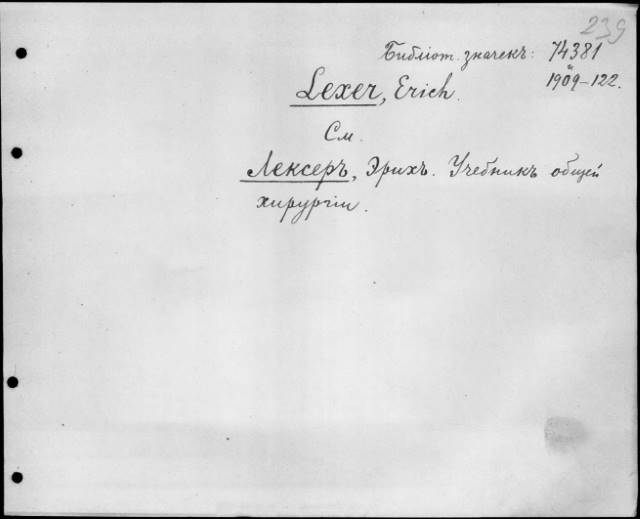 239
Библіот. значекъ: 74381
и
1909-122.
Lexer, Erich.
См.
Лексеръ, Эрихъ. Учебникъ общей
хирургіи.